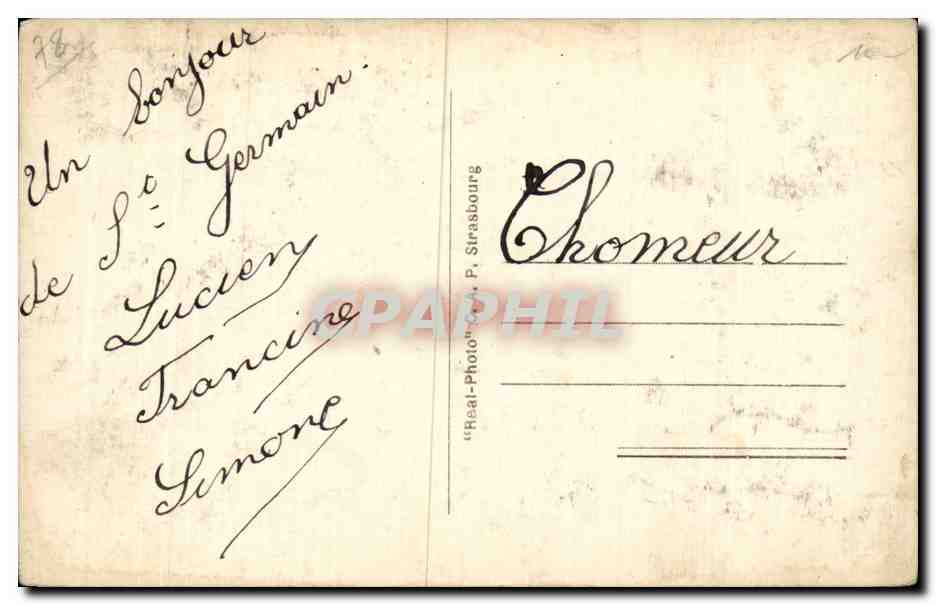 78
Un bonjour
de St Germain.
Lucien
Francine
Simone
"Real-Photo" C. A. P. Strasbourg
Thomeur
CPAPHIL